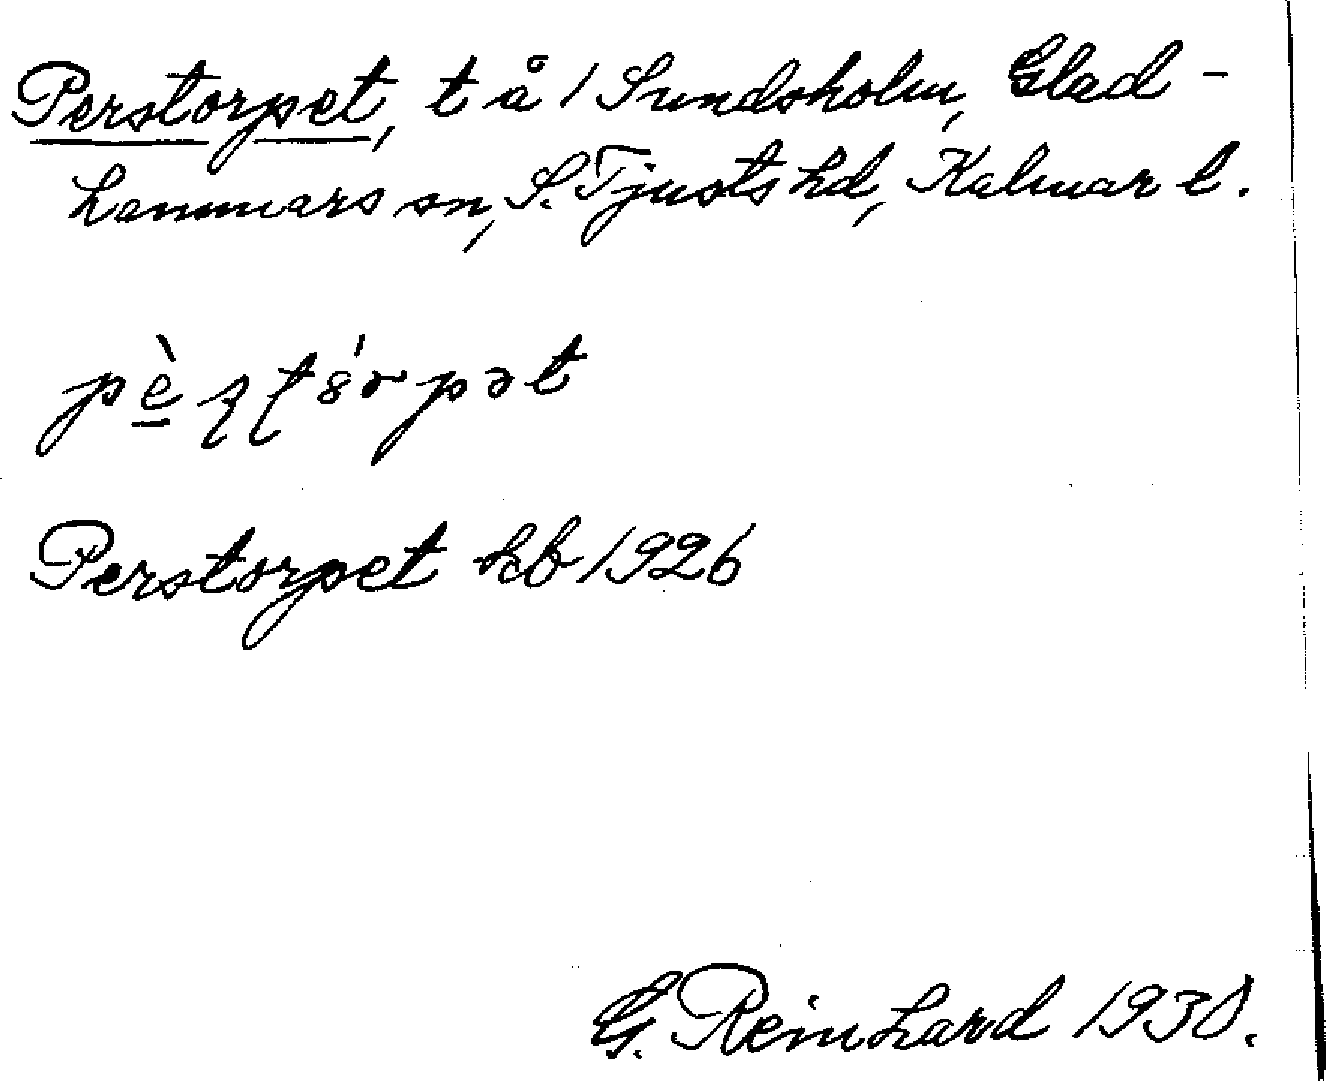 Perstorpet, t å / Sundsholm, Glad-
hammars sn, S. Tjusts hd, Kalmar l.
Perstorpet kb 1926
G. Reinhard 1930.